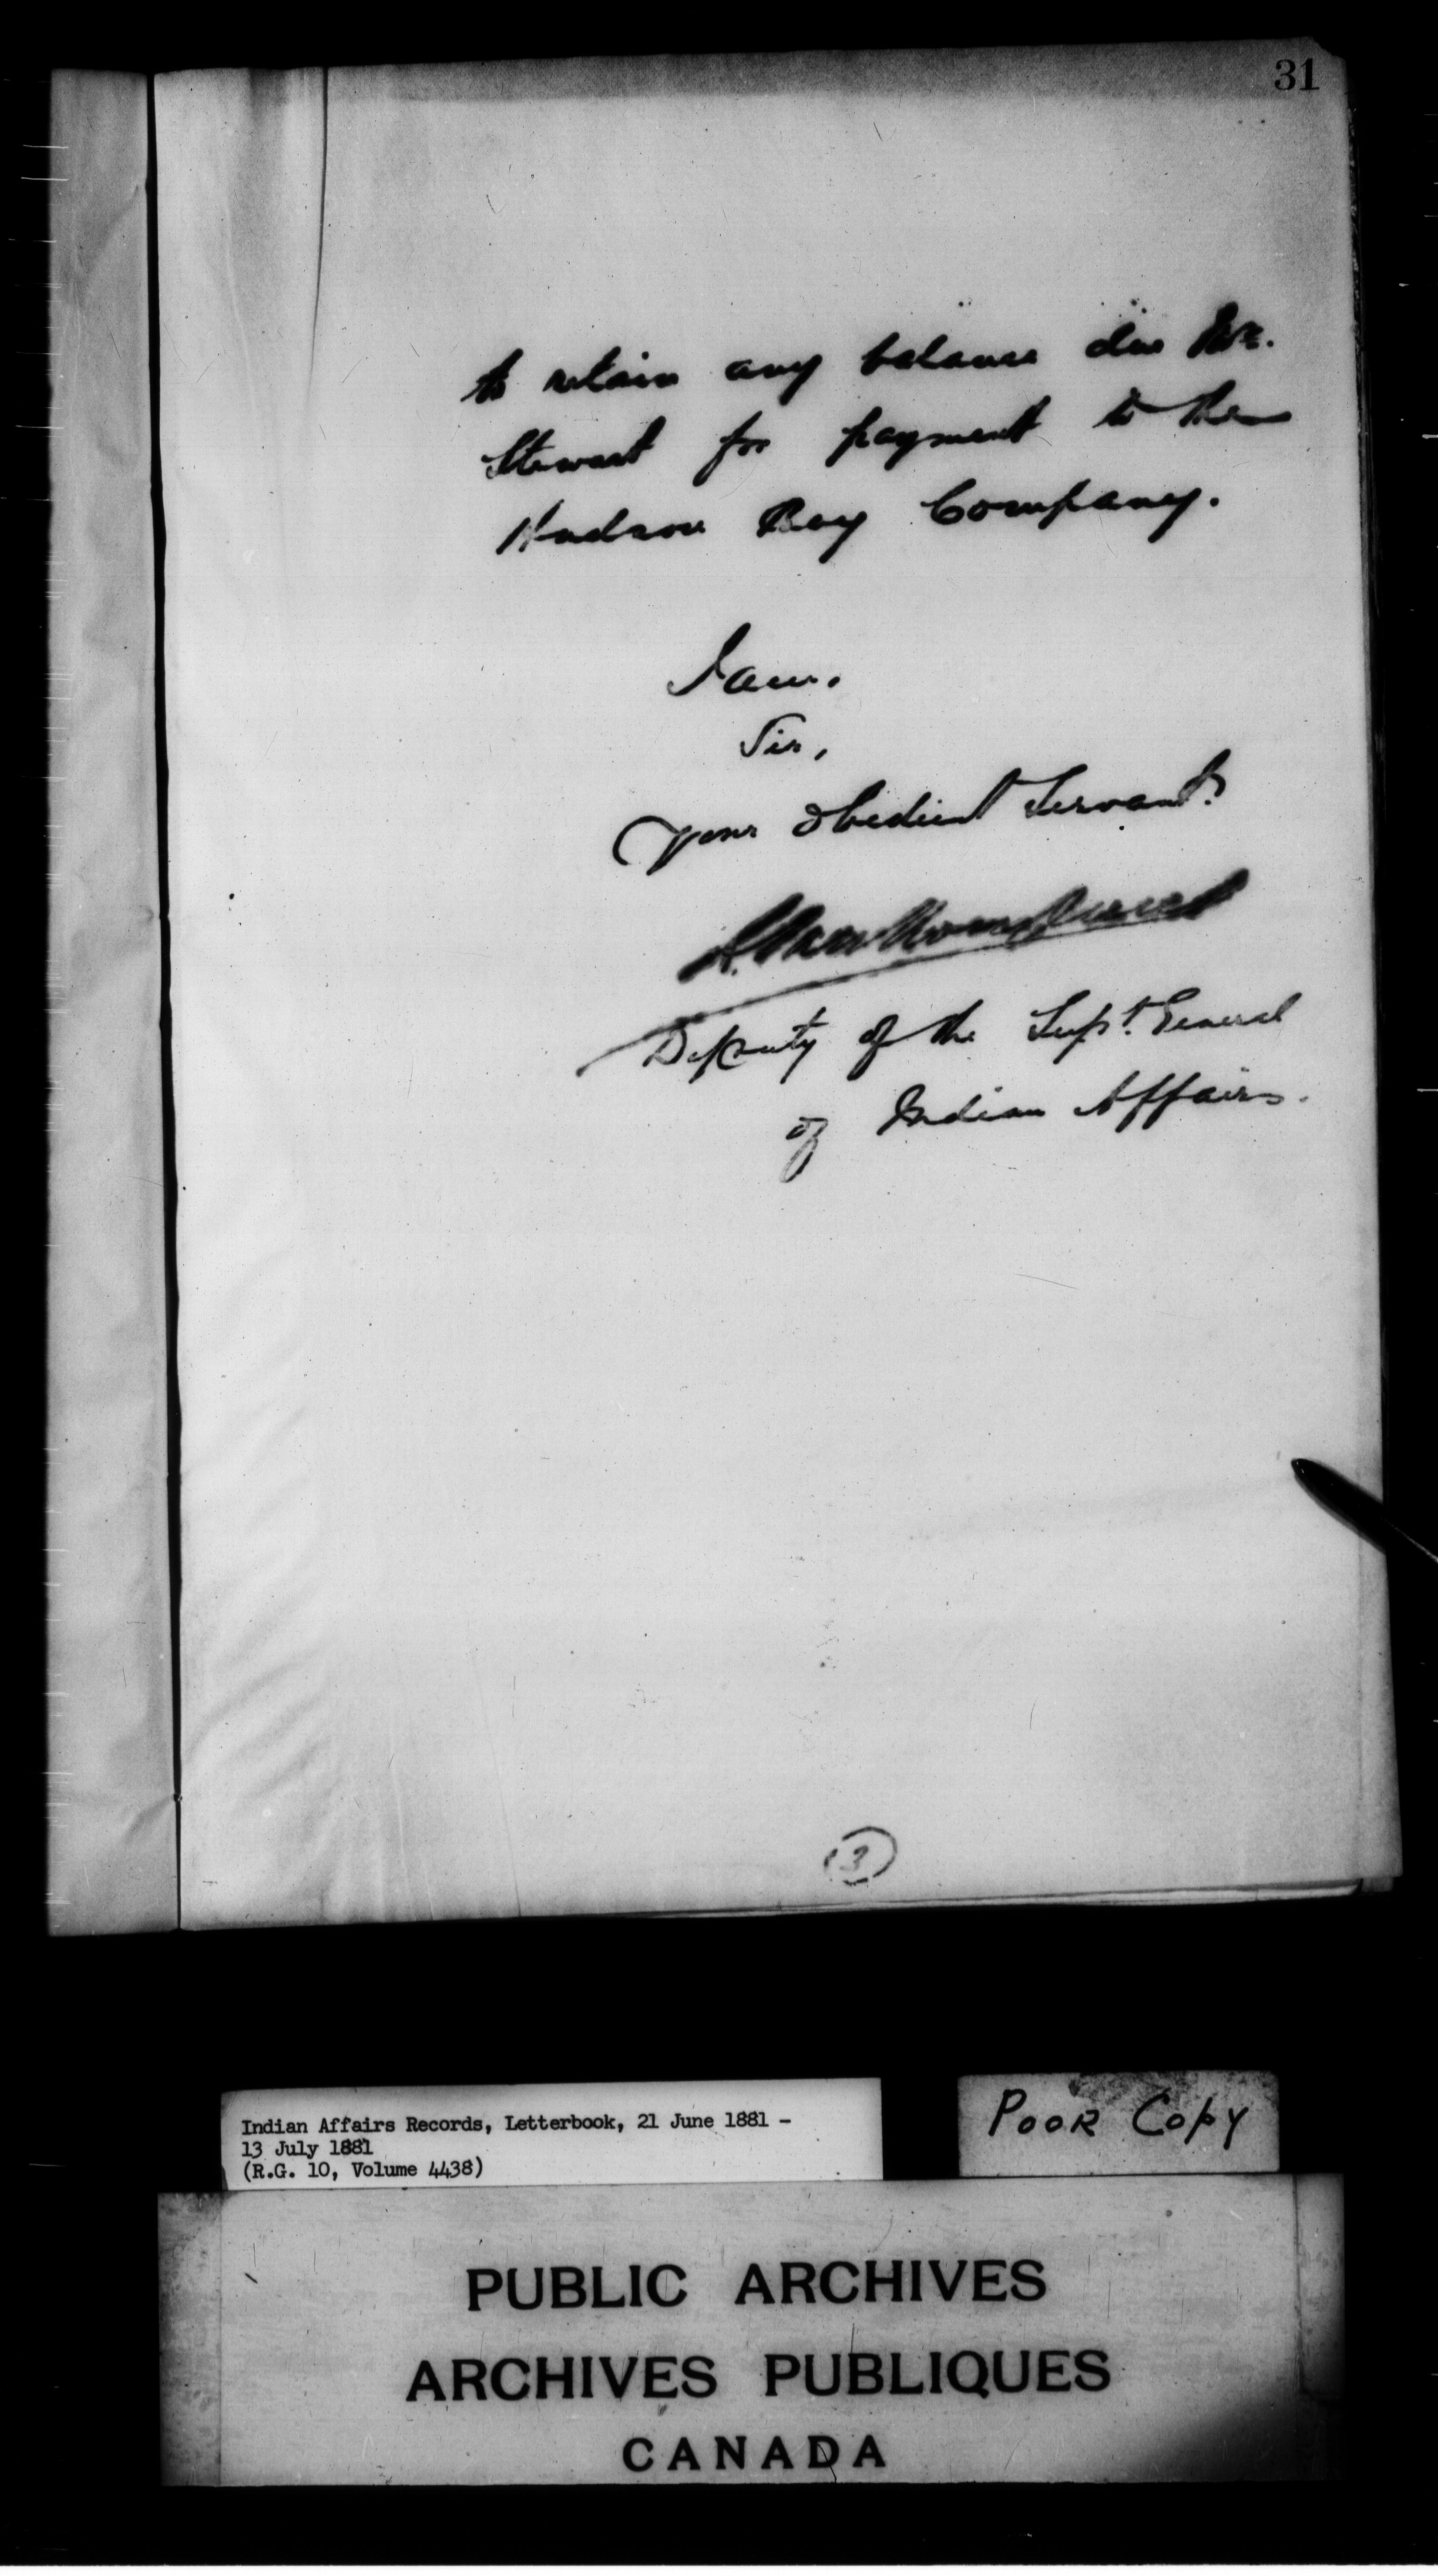 31
to retain any balance due Mr.
Stewart for payment to the
Hudson Bay Company.
I am.
Sir,
Your obedient Servant
Deputy of the Supt. General
of Indian Affairs.
3
Indian Affairs Records, Letterbook, 21 June 1881 -
13 July 1881
(R.G. 10, Volume 4438)
POOR COPY
PUBLIC ARCHIVES
ARCHIVES PUBLIQUES
CANADA